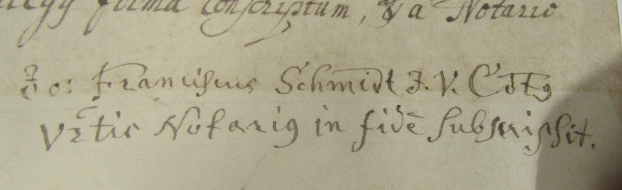 forma Conscriptum, & a Notario
Jo: Franciscus Schmidt J. V. Cdt9
Notari9 in fidē subscripsit.